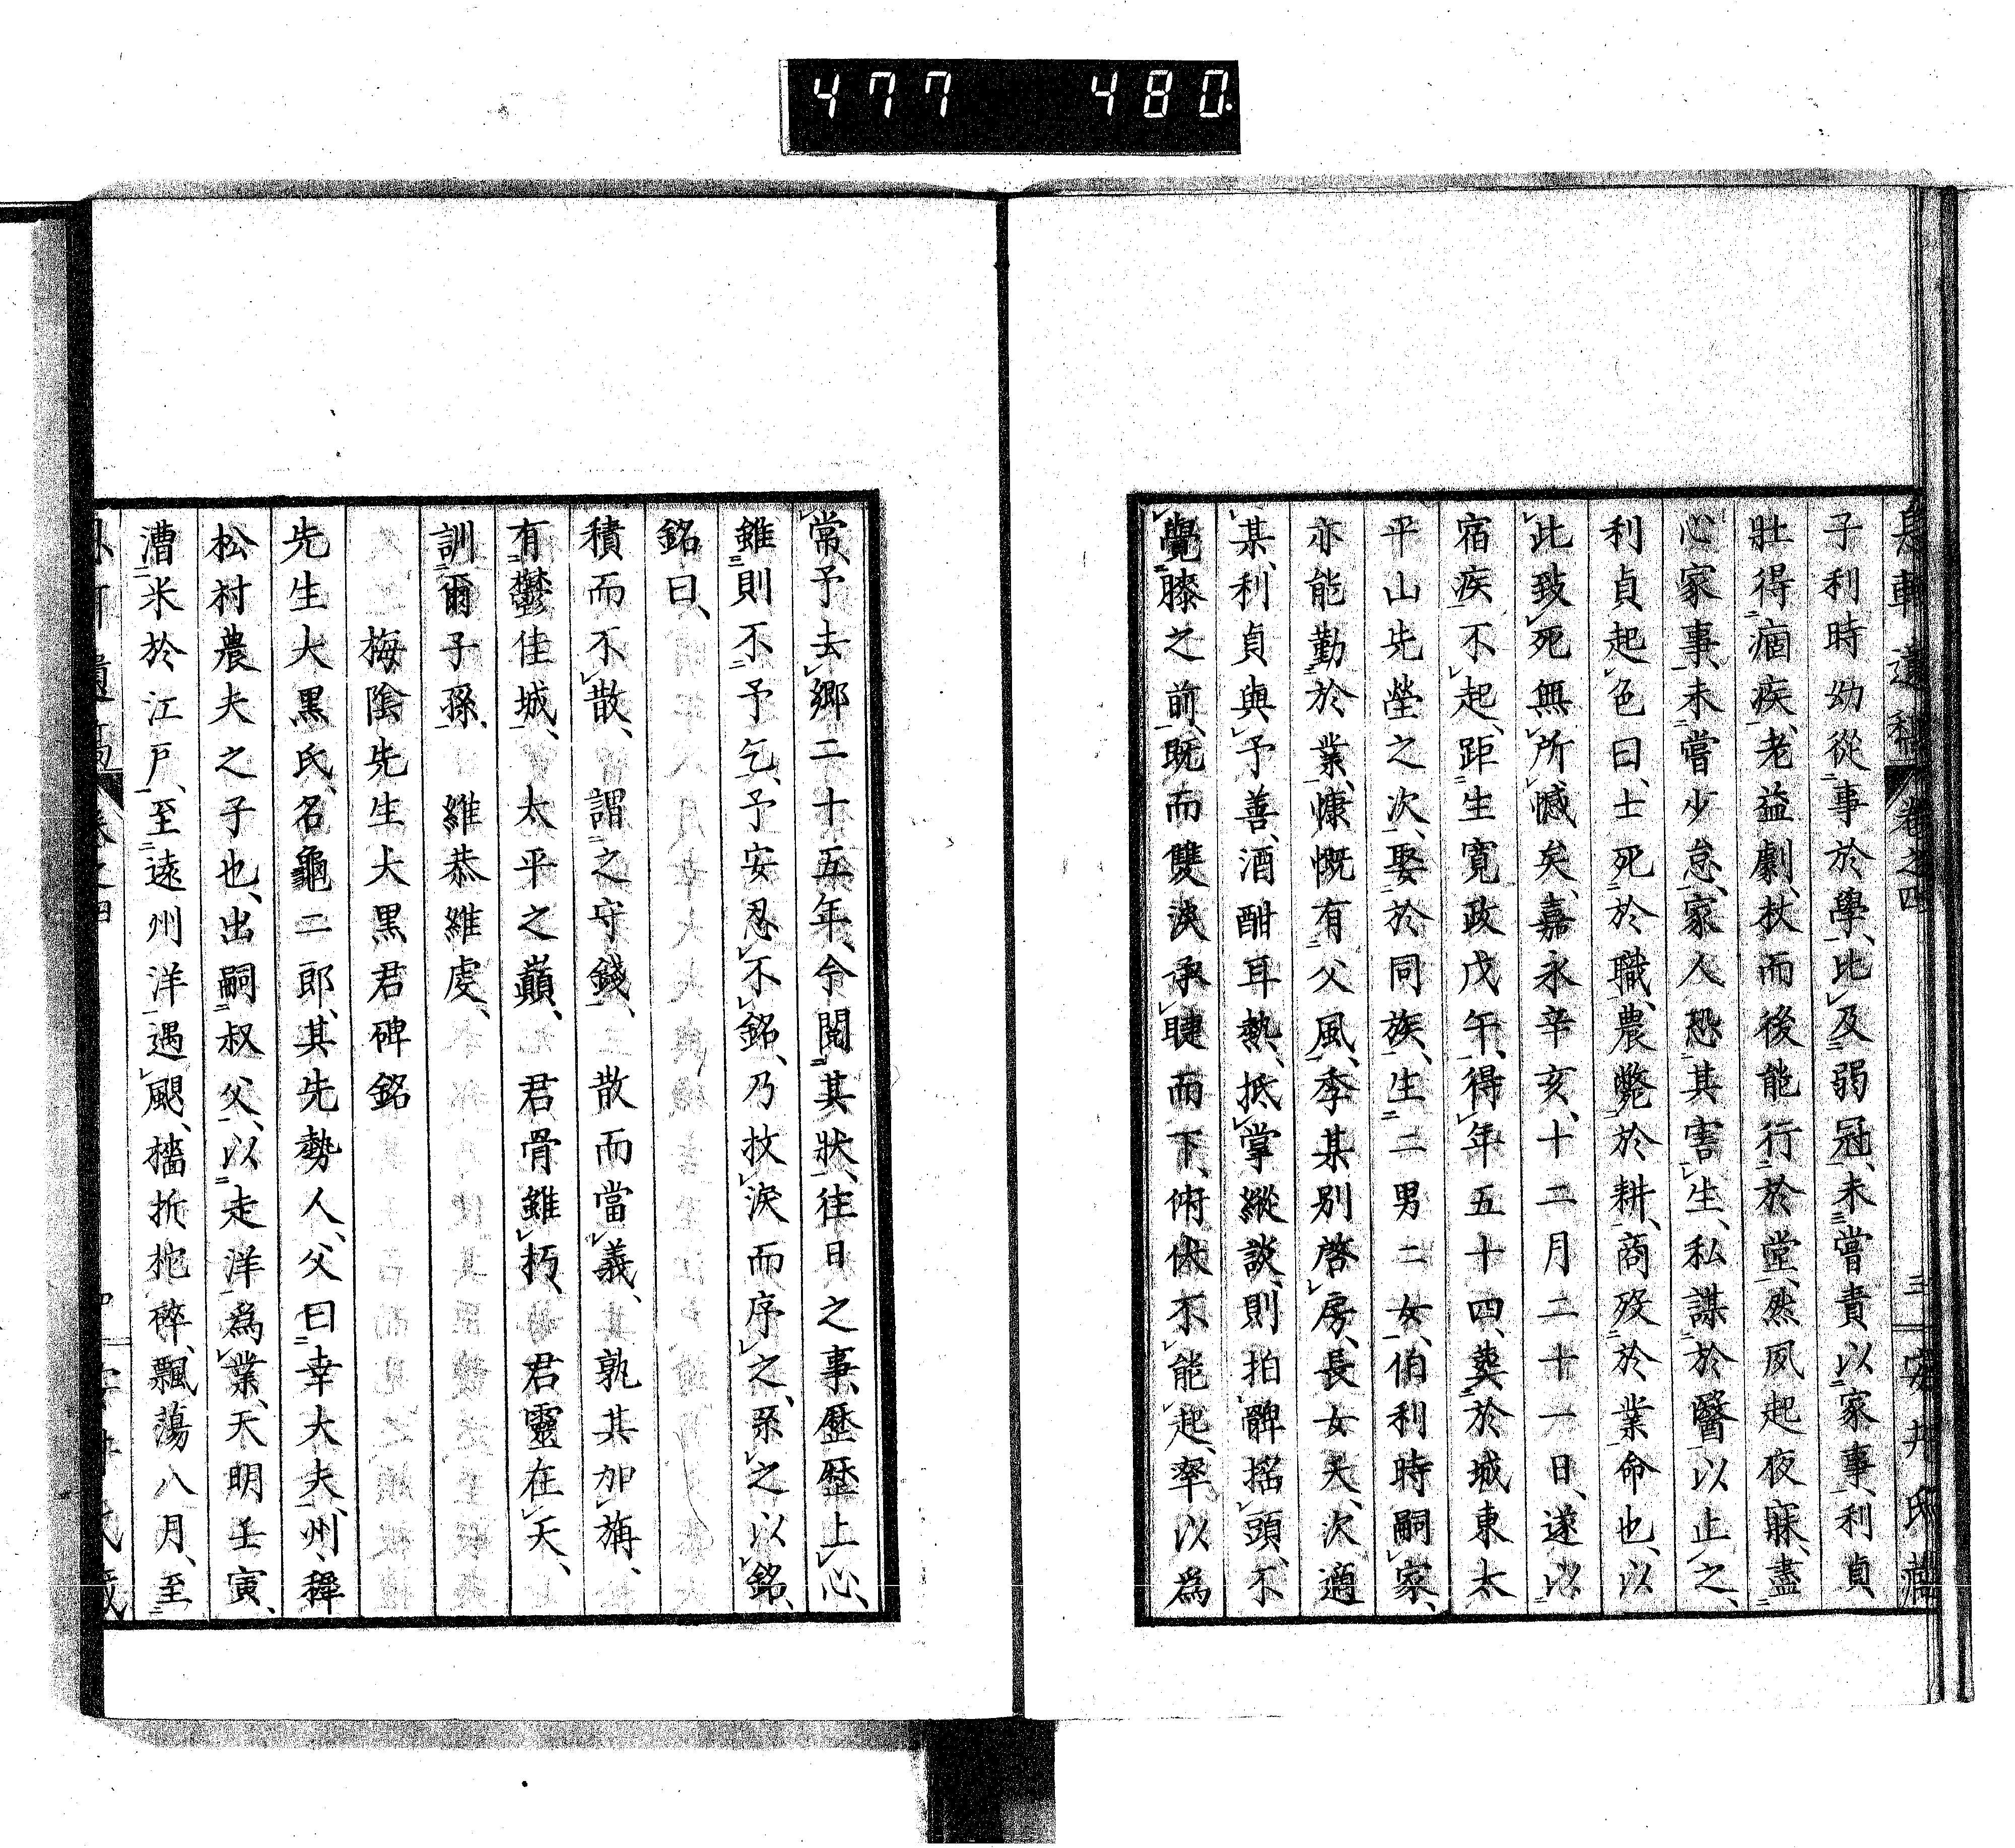 477 480
息軒遺稿 卷之四 三 安井氏藏
子利時幼從事於學、比及弱冠、未嘗責以家事、利貞
壯得痼疾、老益劇、杖而後能行於堂、然夙起夜寐、盡
心家事、未嘗少怠、家人恐其害生、私謀於醫以止之、
利貞起色曰、士死於職、農斃於耕、商歿於業命也、以
此致死無所憾矣、嘉永辛亥、十二月二十一日、遂以
宿疾不起、距生寬政戊午、得年五十四、葬於城東太
平山先塋之次、娶於同族、生二男二女、伯利時嗣家、
亦能勤於業、慷慨有父風、季某別啓房、長女夭、次適
某、利貞與予善、酒酣耳熱、抵掌縱談、則拍髀搖頭、不
覺膝之前、既而雙淚承睫而下、俯伏不能起、率以爲
常、予去鄉二十五年、今閱其狀、往日之事、歷歷上心、
雖則不予乞、予安忍不銘、乃抆淚而序之、系之以銘、
銘曰、
積而不散、 謂之守錢、 散而當義、 孰其加旃、
有鬱佳城、 太平之巓、 君骨雖朽、 君靈在天、
訓爾子孫、 維恭維虔、
梅陰先生大黑君碑銘
先生大黑氏、名龜二郎、其先勢人、父曰幸大夫、州稺
松村農夫之子也、出嗣叔父、以走洋爲業、天明壬寅、
漕米於江戶、至遠州洋遇颶、檣折柁碎、飄蕩八月、至